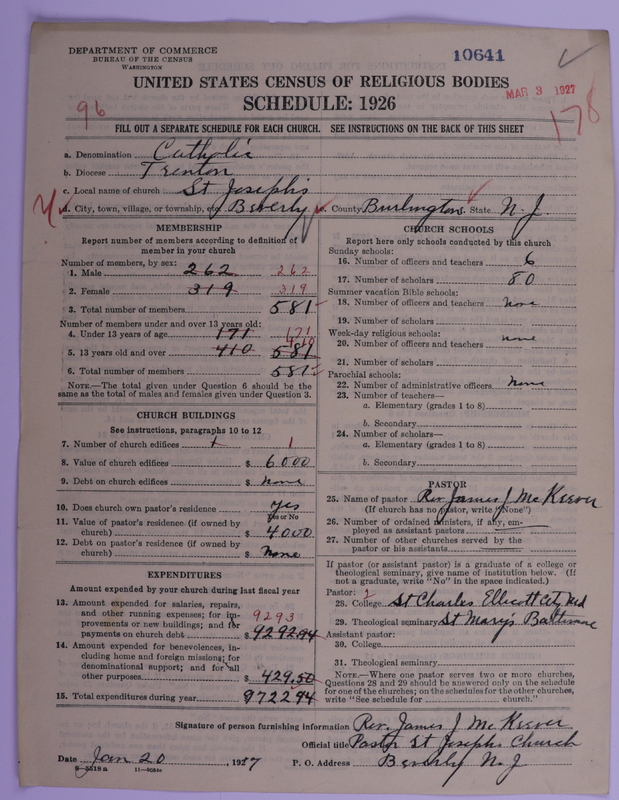 DEPARTMENT OF COMMERCE
BUREAU OF THE CENSUS
WASHINGTON
10641
UNITED STATES CENSUS OF RELIGIOUS BODIES
MAR 3 1927
SCHEDULE: 1926
96
178
FILL OUT A SEPARATE SCHEDULE FOR EACH CHURCH. SEE INSTRUCTIONS ON THE BACK OF THIS SHEET
a. Denomination Catholic
b. Diocese Trenton
c. Local name of church St Josephs
d. City, town, village, or township, of Beverly e. County Burlington State N. J.
MEMBERSHIP
Report number of members according to definition of
member in your church
Number of members, by sex:
1. Male 262 262
2. Female 319 319
3. Total number of members 581
Number of members under and over 13 years old:
4. Under 13 years of age 171 171
5. 13 years old and over 410 581 410
6. Total number of members 581
NOTE.—The total given under Question 6 should be the
same as the total of males and females given under Question 3.
CHURCH BUILDINGS
See instructions, paragraphs 10 to 12
7. Number of church edifices 1 1
8. Value of church edifices $ 6000
9. Debt on church edifices $ None
10. Does church own pastor's residence? yes
Yes or No
11. Value of pastor's residence (if owned by
church) $ 4000
12. Debt on pastor's residence (if owned by
church) $ None
EXPENDITURES
Amount expended by your church during last fiscal year
13. Amount expended for salaries, repairs,
and other running expenses; for im-
provements or new buildings; and for
payments on church debt $ 9292.94
9293
14. Amount expended for benevolences, in-
cluding home and foreign missions; for
denominational support; and for all
other purposes $ 429.50
15. Total expenditures during year $ 972294
CHURCH SCHOOLS
Report here only schools conducted by this church
Sunday schools:
16. Number of officers and teachers 6
17. Number of scholars 80
Summer vacation Bible schools:
18. Number of officers and teachers None
19. Number of scholars
Week-day religious schools:
20. Number of officers and teachers none
21. Number of scholars
Parochial schools:
22. Number of administrative officers None
23. Number of teachers—
a. Elementary (grades 1 to 8)
b. Secondary
24. Number of scholars—
a. Elementary (grades 1 to 8)
b. Secondary
PASTOR
25. Name of pastor Rev. James J McKeever
(If church has no pastor, write "None")
26. Number of ordained ministers, if any, em-
ployed as assistant pastors
27. Number of other churches served by the
pastor or his assistants
If pastor (or assistant pastor) is a graduate of a college or
theological seminary, give name of institution below. (If
not a graduate, write "No" in the space indicated.)
Pastor: 2
28. College St Charles Ellicott City Md
29. Theological seminary St Marys Baltimore
Assistant pastor:
30. College
31. Theological seminary
NOTE.—Where one pastor serves two or more churches,
Questions 28 and 29 should be answered only on the schedule
for one of the churches; on the schedules for the other churches,
write "See schedule for church."
Signature of person furnishing information Rev. James J McKeever
Official title Pastor St Josephs Church
Date Jan 20, 1927 P. O. Address Beverly N. J